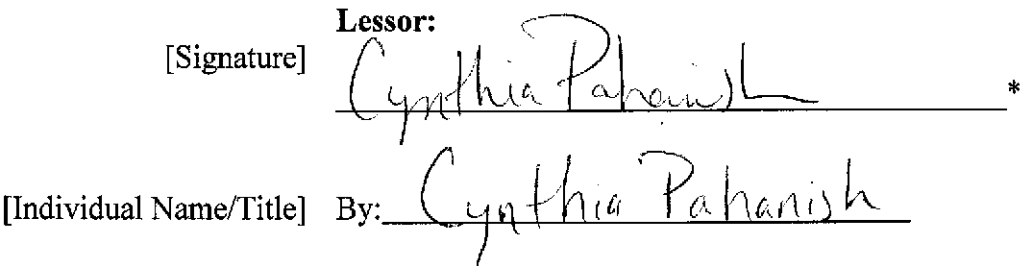 Lessor:
[Signature] Cynthia Pahanish *
[Individual Name/Title] By: Cynthia Pahanish